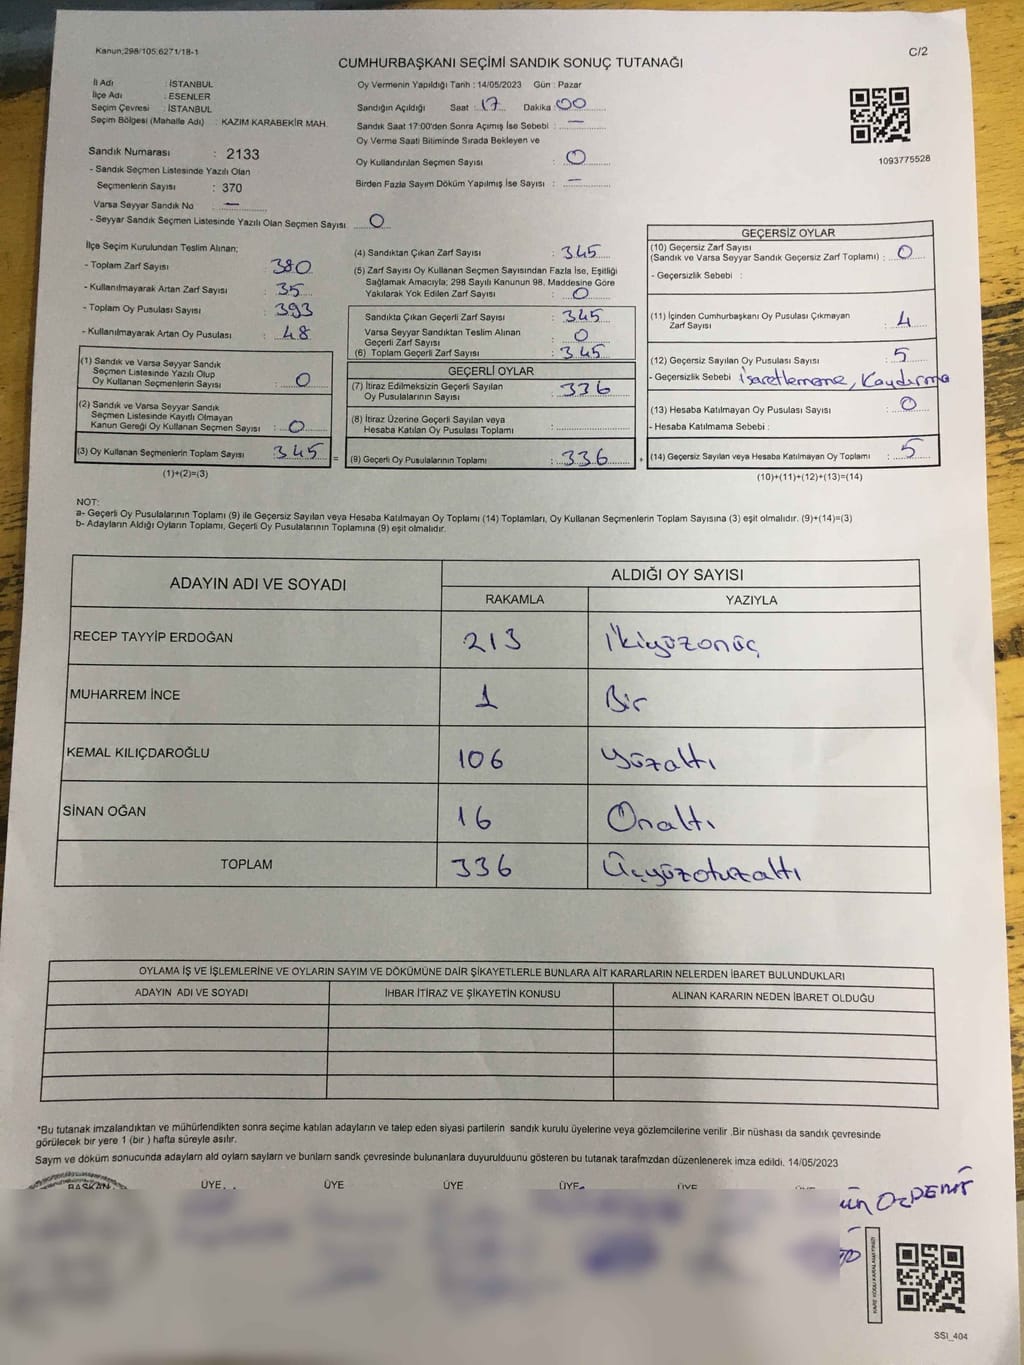 Kanun;298/105;6271/18-1
C/2
CUMHURBAŞKANI SEÇİMİ SANDIK SONUÇ TUTANAĞI
İl Adı : İSTANBUL
İlçe Adı : ESENLER
Seçim Çevresi : İSTANBUL
Seçim Bölgesi (Mahalle Adı) : KAZIM KARABEKİR MAH.
Sandık Numarası : 2133
- Sandık Seçmen Listesinde Yazılı Olan
Seçmenlerin Sayısı : 370
Varsa Seyyar Sandık No : —
- Seyyar Sandık Seçmen Listesinde Yazılı Olan Seçmen Sayısı : 0
Oy Vermenin Yapıldığı Tarih : 14/05/2023 Gün : Pazar
Sandığın Açıldığı Saat : 17 Dakika : 00
Sandık Saat 17:00'den Sonra Açımış İse Sebebi : —
Oy Verme Saati Bitiminde Sırada Bekleyen ve
Oy Kullandırılan Seçmen Sayısı : 0
Birden Fazla Sayım Döküm Yapılmış İse Sayısı : —
1093775528
İlçe Seçim Kurulundan Teslim Alınan;
- Toplam Zarf Sayısı : 380
- Kullanılmayarak Artan Zarf Sayısı : 35
- Toplam Oy Pusulası Sayısı : 393
- Kullanılmayarak Artan Oy Pusulası : 48
(1) Sandık ve Varsa Seyyar Sandık
Seçmen Listesinde Yazılı Olup
Oy Kullanan Seçmenlerin Sayısı : 0
(2) Sandık ve Varsa Seyyar Sandık
Seçmen Listesinde Kayıtlı Olmayan
Kanun Gereği Oy Kullanan Seçmen Sayısı : 0
(3) Oy Kullanan Seçmenlerin Toplam Sayısı : 345
(1)+(2)=(3)
(4) Sandıktan Çıkan Zarf Sayısı : 345
(5) Zarf Sayısı Oy Kullanan Seçmen Sayısından Fazla İse, Eşitliği
Sağlamak Amacıyla; 298 Sayılı Kanunun 98. Maddesine Göre
Yakılarak Yok Edilen Zarf Sayısı : 0
Sandıkta Çıkan Geçerli Zarf Sayısı : 345
Varsa Seyyar Sandıktan Teslim Alınan
Geçerli Zarf Sayısı : 0
(6) Toplam Geçerli Zarf Sayısı : 345
GEÇERLİ OYLAR
(7) İtiraz Edilmeksizin Geçerli Sayılan
Oy Pusulalarının Sayısı : 336
(8) İtiraz Üzerine Geçerli Sayılan veya
Hesaba Katılan Oy Pusulası Toplamı :
= (9) Geçerli Oy Pusulalarının Toplamı : 336 +
GEÇERSİZ OYLAR
(10) Geçersiz Zarf Sayısı
(Sandık ve Varsa Seyyar Sandık Geçersiz Zarf Toplamı) : 0
- Geçersizlik Sebebi :
(11) İçinden Cumhurbaşkanı Oy Pusulası Çıkmayan
Zarf Sayısı : 4
(12) Geçersiz Sayılan Oy Pusulası Sayısı : 5
- Geçersizlik Sebebi : İşaretlememe, Kaydırma
(13) Hesaba Katılmayan Oy Pusulası Sayısı : 0
- Hesaba Katılmama Sebebi :
(14) Geçersiz Sayılan veya Hesaba Katılmayan Oy Toplamı : 5
(10)+(11)+(12)+(13)=(14)
NOT:
a- Geçerli Oy Pusulalarının Toplamı (9) ile Geçersiz Sayılan veya Hesaba Katılmayan Oy Toplamı (14) Toplamları, Oy Kullanan Seçmenlerin Toplam Sayısına (3) eşit olmalıdır. (9)+(14)=(3)
b- Adayların Aldığı Oyların Toplamı, Geçerli Oy Pusulalarının Toplamına (9) eşit olmalıdır.
ADAYIN ADI VE SOYADI
ALDIĞI OY SAYISI
RAKAMLA YAZIYLA
RECEP TAYYİP ERDOĞAN 213 İkiyüzonüç
MUHARREM İNCE 1 Bir
KEMAL KILIÇDAROĞLU 106 Yüzaltı
SİNAN OĞAN 16 Onaltı
TOPLAM 336 Üçyüzotuzaltı
OYLAMA İŞ VE İŞLEMLERİNE VE OYLARIN SAYIM VE DÖKÜMÜNE DAİR ŞİKAYETLERLE BUNLARA AİT KARARLARIN NELERDEN İBARET BULUNDUKLARI
ADAYIN ADI VE SOYADI İHBAR İTİRAZ VE ŞİKAYETİN KONUSU ALINAN KARARIN NEDEN İBARET OLDUĞU
*Bu tutanak imzalandıktan ve mühürlendikten sonra seçime katılan adayların ve talep eden siyasi partilerin sandık kurulu üyelerine veya gözlemcilerine verilir .Bir nüshası da sandık çevresinde
görülecek bir yere 1 (bir ) hafta süreyle asılır.
Saym ve döküm sonucunda adaylarn ald oylarn saylarn ve bunlarn sandk çevresinde bulunanlara duyurulduunu gösteren bu tutanak tarafmzdan düzenlenerek imza edildi. 14/05/2023
BAŞKAN ÜYE ÜYE ÜYE ÜYE ÜYE
SSI_404